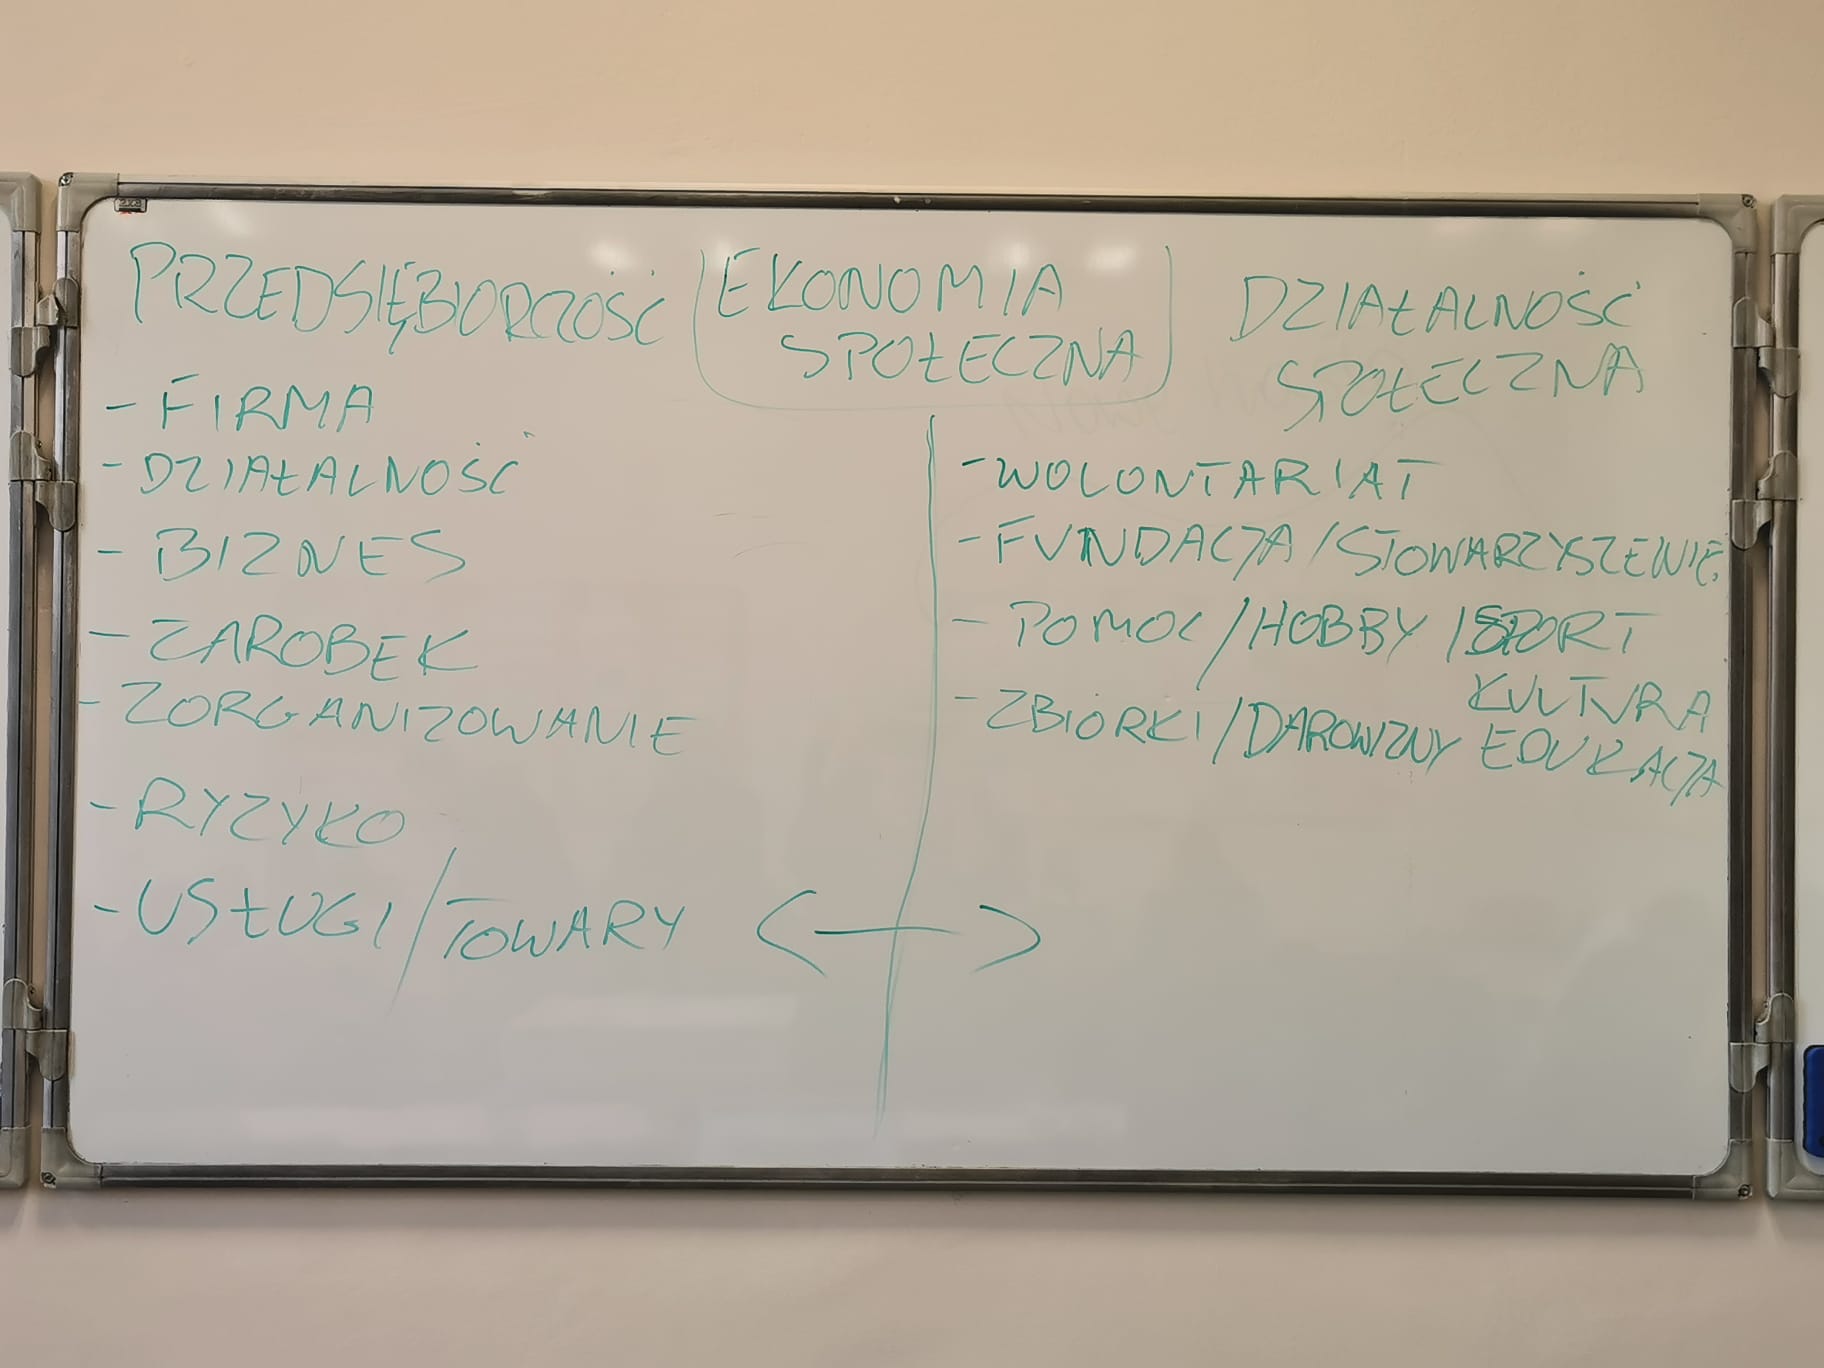 PRZEDSIĘBIORCZOŚĆ
- FIRMA
- DZIAŁALNOŚĆ
- BIZNES
- ZAROBEK
- ZORGANIZOWANIE
- RYZYKO
- USŁUGI/TOWARY
EKONOMIA
SPOŁECZNA
DZIAŁALNOŚĆ
SPOŁECZNA
- WOLONTARIAT
- FUNDACJA/STOWARZYSZENIE
- POMOC/HOBBY/SPORT
KULTURA
- ZBIÓRKI/DAROWIZNY EDUKACJA